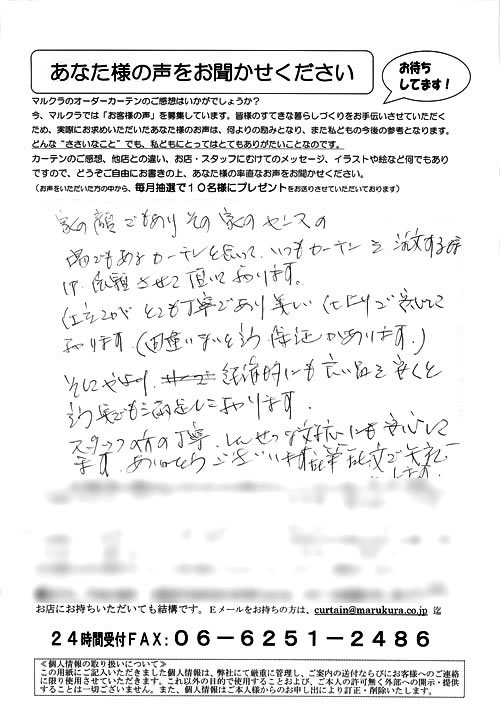 あなた様の声をお聞かせください
お待ち
してます！
マルクラのオーダーカーテンのご感想はいかがでしょうか？
今、マルクラでは「お客様の声」を募集しています。皆様のすてきな暮らしづくりをお手伝いさせていただく
ため、実際にお求めいただいたあなた様のお声は、何よりの励みとなり、また私どもの今後の参考となります。
どんな“ささいなこと”でも、私どもにとってはとてもありがたいことなのです。
カーテンのご感想、他店との違い、お店・スタッフにむけてのメッセージ、イラストや絵など何でもあり
ですので、どうぞご自由にお書きの上、あなた様の率直なお声をお聞かせください。
（お声をいただいた方の中から、毎月抽選で１０名様にプレゼントをお送りさせていただいております）
家の顔でもあり その家のセンスの
場でもあるカーテンと思って、いつもカーテンを注文する時
は、依頼させて頂いております。
仕立てが とても丁寧であり美しい仕上りで安心して
おります（間違いないと言う 保証があります。）
そしてやはり、経済的にも良い品を安くと
言う点でも満足しております。
スタッフの方の丁寧、しんせつな対応にも安心して
ます。ありがとうございます 乱筆乱文で失礼
します。
お店にお持ちいただいても結構です。Ｅメールをお持ちの方は、curtain@marukura.co.jp 迄
２４時間受付FAX：０６－６２５１－２４８６
≪個人情報の取り扱いについて≫
この用紙にご記入いただきました個人情報は、弊社にて厳重に管理し、ご案内の送付ならびにお客様へのご連絡
に限り使用させていただきます。これ以外の目的で使用することおよび、ご本人の許可無く外部への開示・提供
することは一切ございません。また、個人情報はご本人様からのお申し出により訂正・削除いたします。